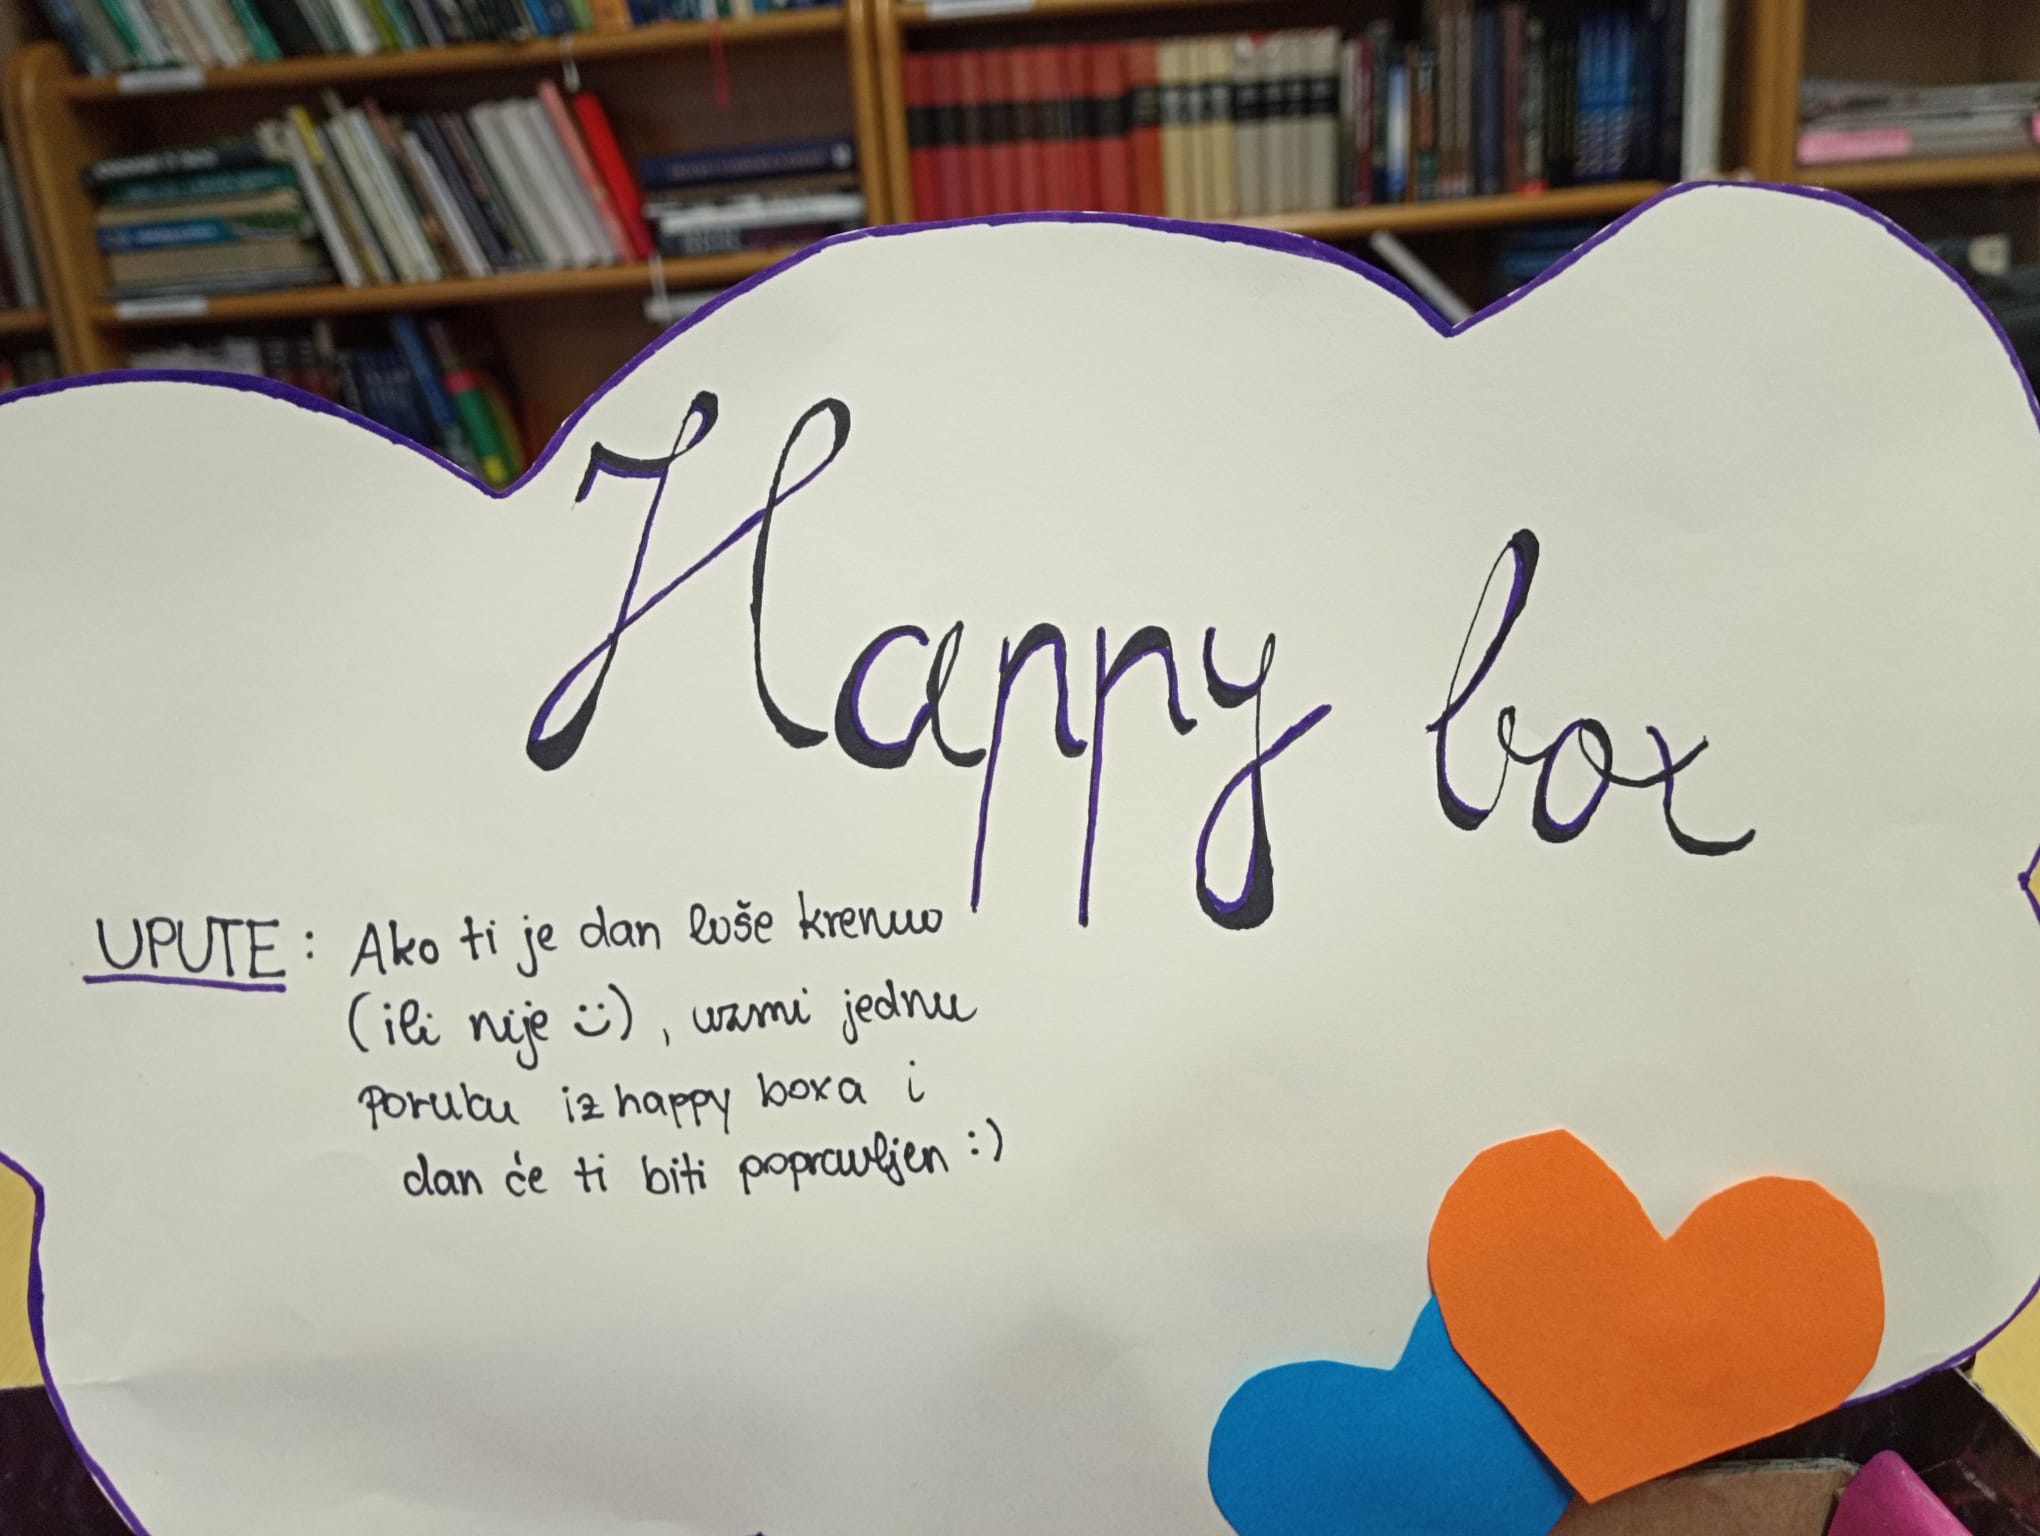 Happy box
UPUTE: Ako ti je dan loše krenuo
(ili nije :)), uzmi jednu
poruku iz happy boxa i
dan će ti biti popravljen :)